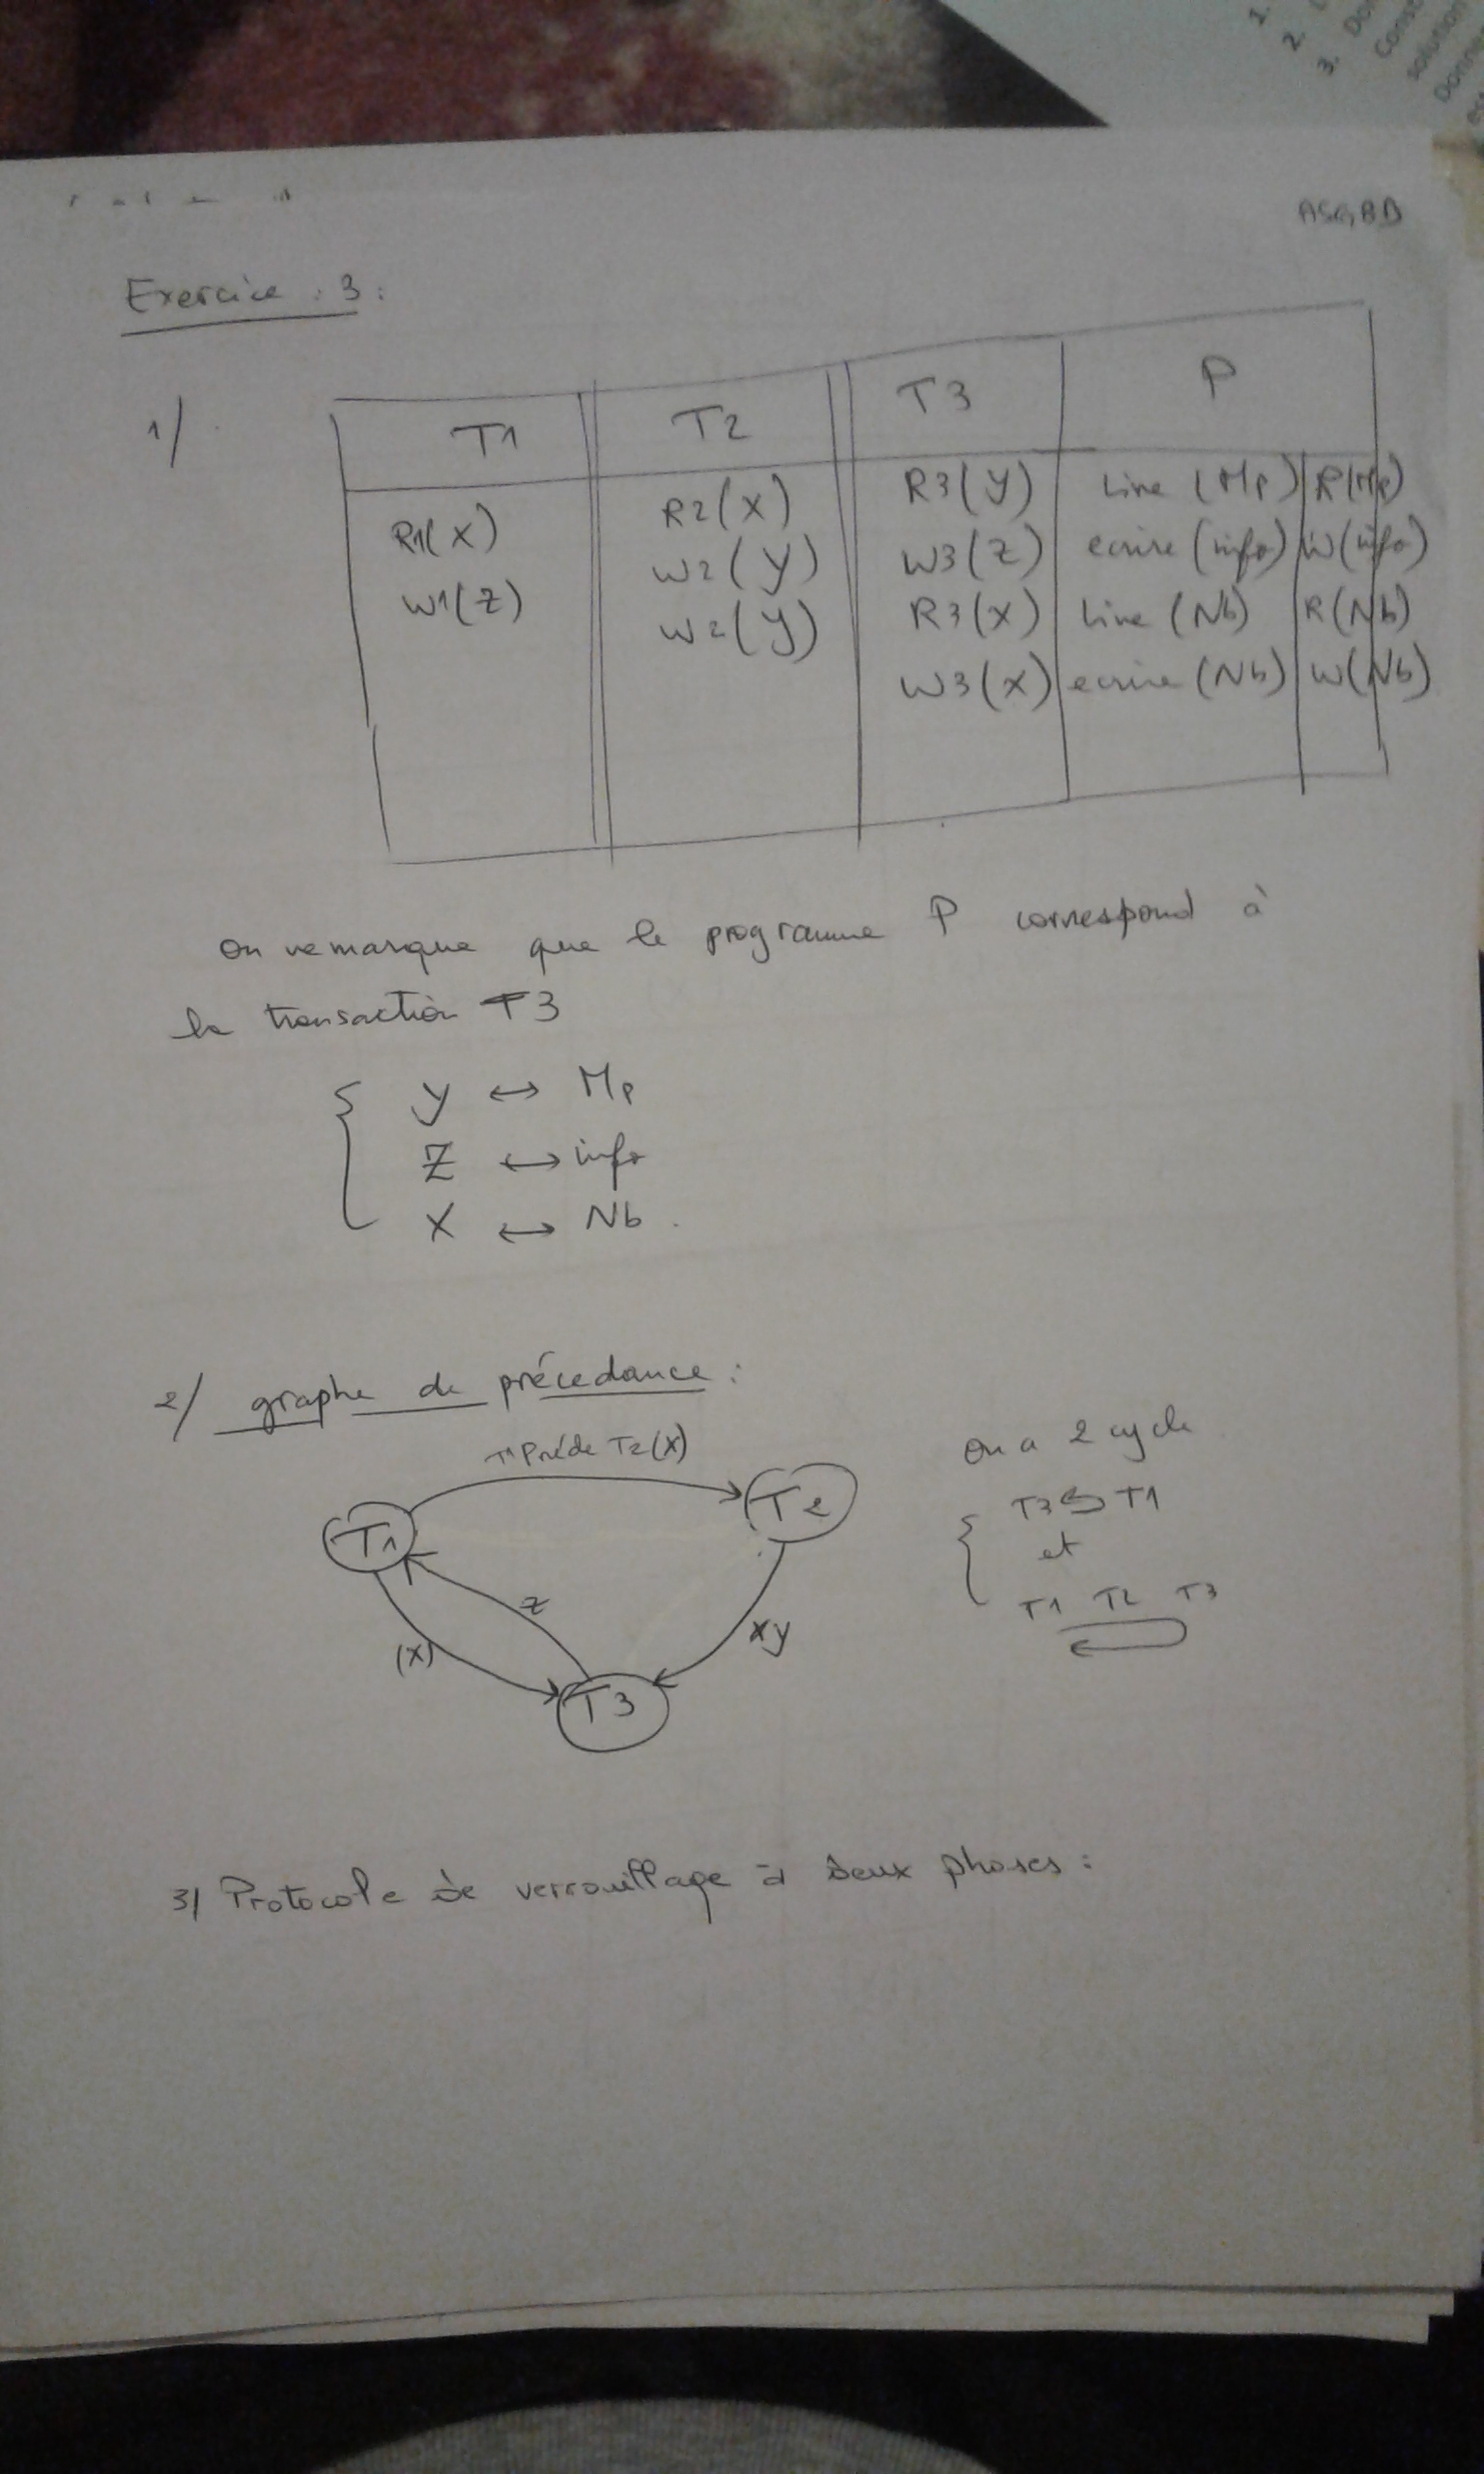 1.
2.
3. Do
Const
solution
Donne
ASGBD
Exercice : 3 :
1/
T1 T2 T3 P
R1(X) R2(X) R3(y) Lire (Mp) R(Mp)
W1(Z) W2(y) W3(Z) ecrire (info) W(info)
W2(y) R3(X) Lire (Nb) R(Nb)
W3(X) ecrire (Nb) W(Nb)
on remarque que le programme P correspond à
la transaction T3
{ y ↔ Mp
Z ↔ info
X ↔ Nb .
2/ graphe de précedance :
T1 T2 (X)
T1 T2
Z
(X) xy
T3
on a 2 cycle
{ T3 T1
et
T1 T2 T3
3/ Protocole de verrouillage à deux phases :